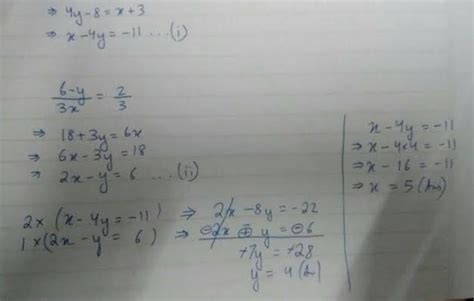 ⇒ 4y-8 = x+3
⇒ x-4y = -11 ...(i)
6-y/3x = 2/3
⇒ 18+3y = 6x
⇒ 6x-3y = 18
⇒ 2x-y = 6 ...(ii)
2x (x-4y = -11) ⇒ 2x - 8y = -22
1x (2x - y = 6) ⇒ ⊖2x ⊕ y = ⊖6
+7y = +28
y = 4 (Ans)
x-4y = -11
⇒ x-4x4 = -11
⇒ x-16 = -11
⇒ x = 5 (Ans)